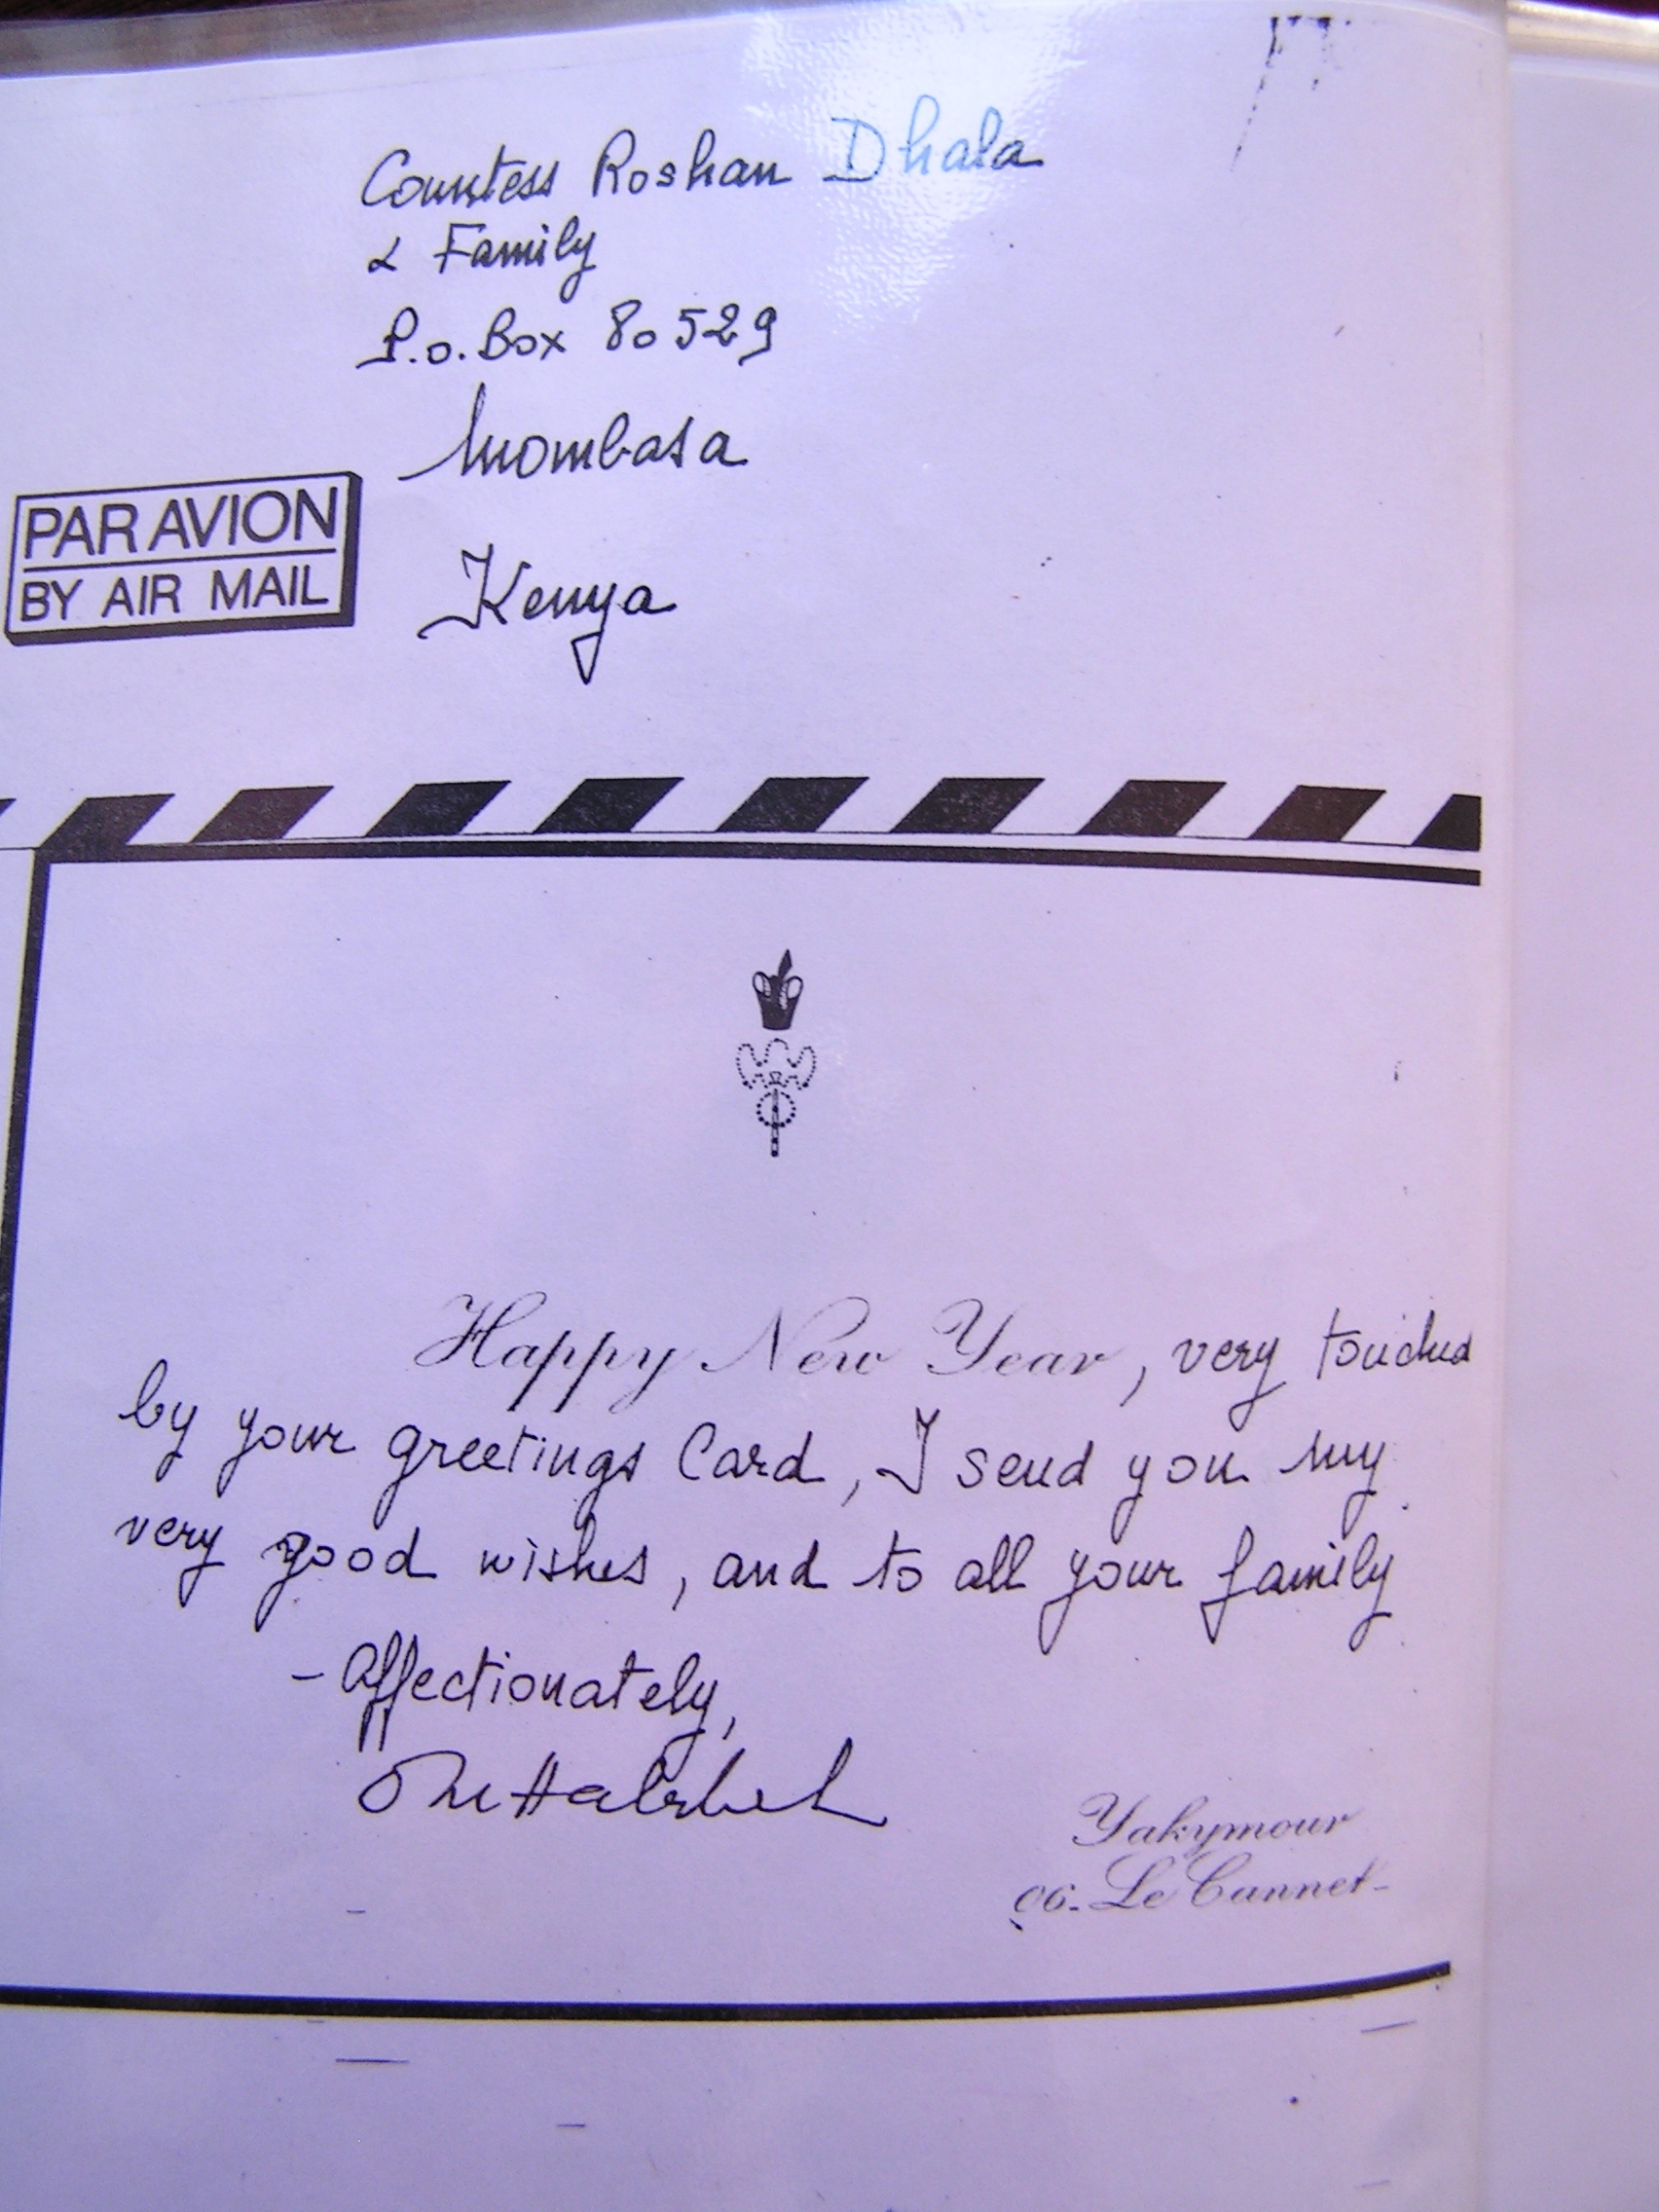 Countess Roshan Dhala
& Family
P.o. Box 80529
Mombasa
PAR AVION
BY AIR MAIL
Kenya
Happy New Year, very touched
by your greetings Card, I send you my
very good wishes, and to all your family
- Affectionately,
Yakymour
06. Le Cannet-